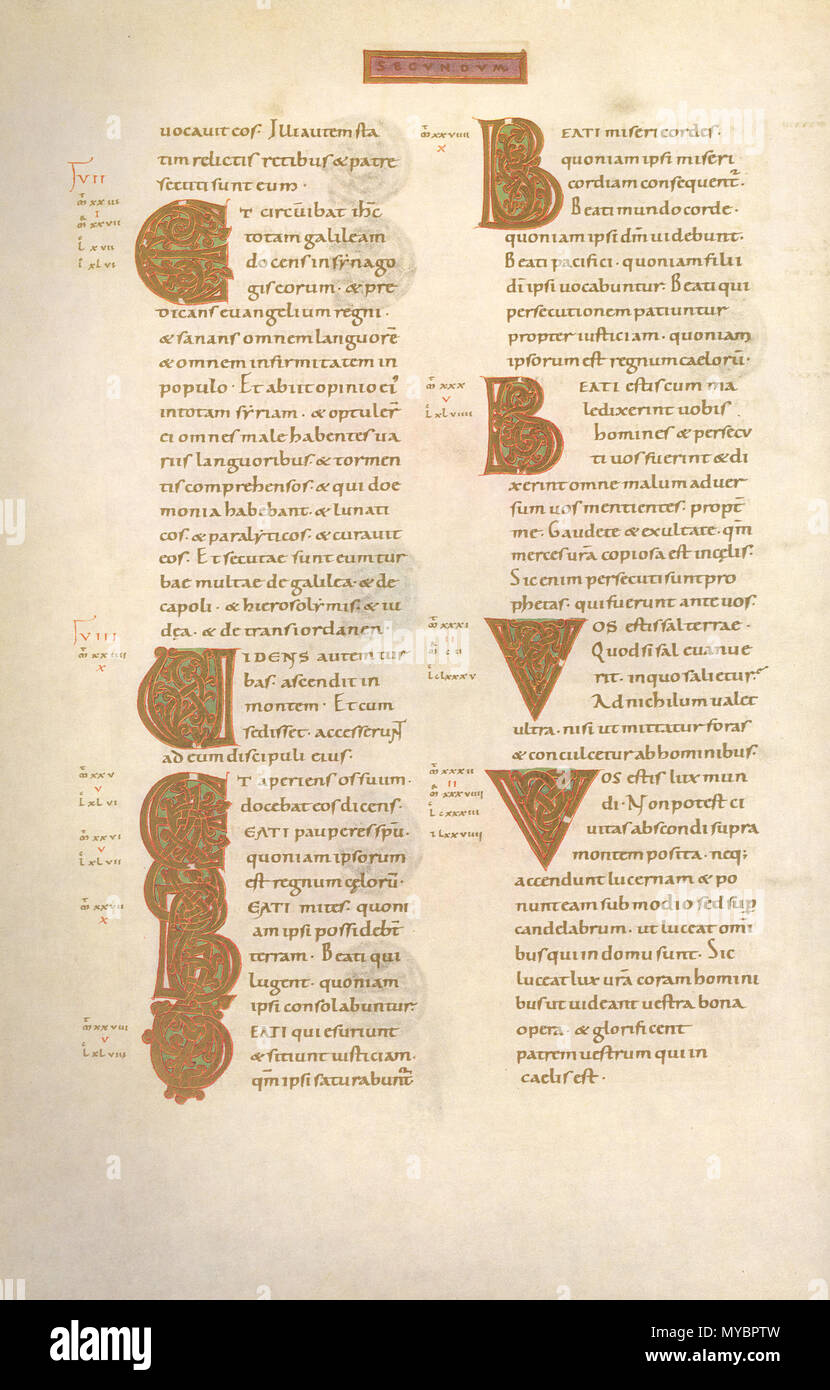 SECVNDVM
uocauit eos. Illi autem sta
tim relictis retibus & patre
secuti sunt eum.
ET circuibat ihc̄
totam galileam
docens in synago
gis eorum. & pre
dicans euangelium regni.
& sanans omnem languorē
& omnem infirmitatem in
populo. Et abiit opinio ei'
in totam syriam. & optuler̄
ei omnes male habentes ua
riis languoribus & tormen
tis comprehensos. & qui doe
monia habebant. & lunati
cos. & paralyticos. & curauit
eos. Et secutae sunt eum tur
bae multae de galilea. & de
capoli. & hierosolymis. & iu
dęa. & de transiordanen.
UIDENS autem tur
bas. ascendit in
montem. Et cum
sedisset. accesserunt
ad eum discipuli eius.
ET aperiens os suum.
docebat eos dicens.
BEATI pauperes spū.
quoniam ipsorum
est regnum cęlorū.
BEATI mites. quoni
am ipsi possidebt̄
terram. Beati qui
lugent. quoniam
ipsi consolabuntur.
BEATI qui esuriunt
& sitiunt iusticiam.
qm̄ ipsi saturabunt̄
BEATI misericordes.
quoniam ipsi miseri
cordiam consequent̄.
Beati mundo corde.
quoniam ipsi dm̄ uidebunt.
Beati pacifici. quoniam filii
dī ipsi uocabuntur. Beati qui
persecutionem patiuntur
propter iusticiam. quoniam
ipsorum est regnum caelorū.
BEATI estis cum ma
ledixerint uobis
homines & persecu
ti uos fuerint & di
xerint omne malum aduer
sum uos mentientes. propt̄
me. Gaudete & exultate. qm̄
merces urā copiosa est in cęlis.
Sic enim persecuti sunt pro
phetas. qui fuerunt ante uos.
VOS estis sal terrae.
Quod si sal euanue
rit. in quo salietur.
Ad nichilum ualet
ultra. nisi ut mittatur foras
& conculcetur ab hominibus.
VOS estis lux mun
di. Non potest ci
uitas abscondi supra
montem posita. neq;
accendunt lucernam & po
nunt eam sub modio sed sup̄
candelabrum. ut luceat omi
bus qui in domu sunt. Sic
luceat lux urā coram homini
bus ut uideant uestra bona
opera. & glorificent
patrem uestrum qui in
caelis est.
alamy
Image ID: MYBPTW
www.alamy.com